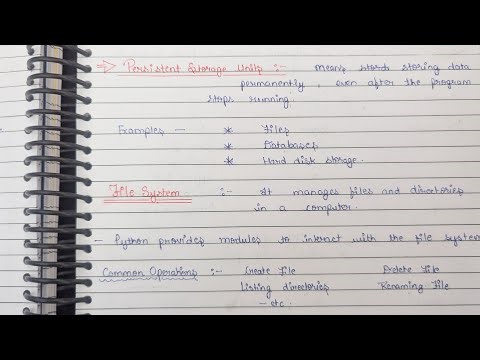 ⇒ Persistent Storage Units :- Means storing data
permanently, even after the program
stops running.
Examples — * Files
* Databases
* Hard disk storage.
File System :- It manages files and directories
in a computer.
- Python provides modules to internet with the file system
Common Operations :- Create File Delete File
Listing directories Renaming File
- etc.